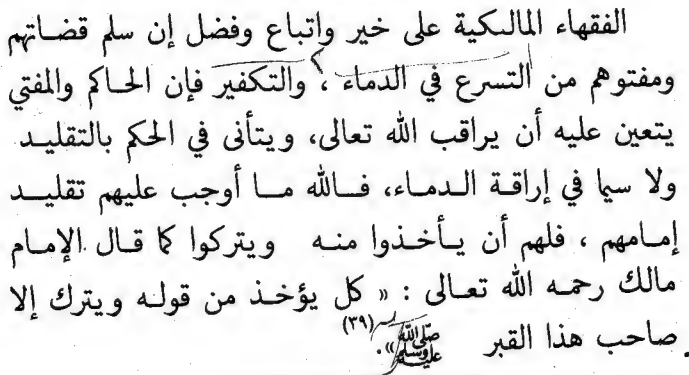 الفقهاء المالكية على خير واتباع وفضل إن سلم قضاتهم
ومفتوهم من التسرع في الدماء ، والتكفير فإن الحاكم والمفتي
يتعين عليه أن يراقب الله تعالى، ويتأنى في الحكم بالتقليد
ولا سيما في إراقة الدماء، فالله ما أوجب عليهم تقليد
إمامهم ، فلهم أن يأخذوا منه ويتركوا كما قال الإمام
مالك رحمه الله تعالى : « كل يؤخذ من قوله ويترك إلا
صاحب هذا القبر ﷺ» (٣٩).